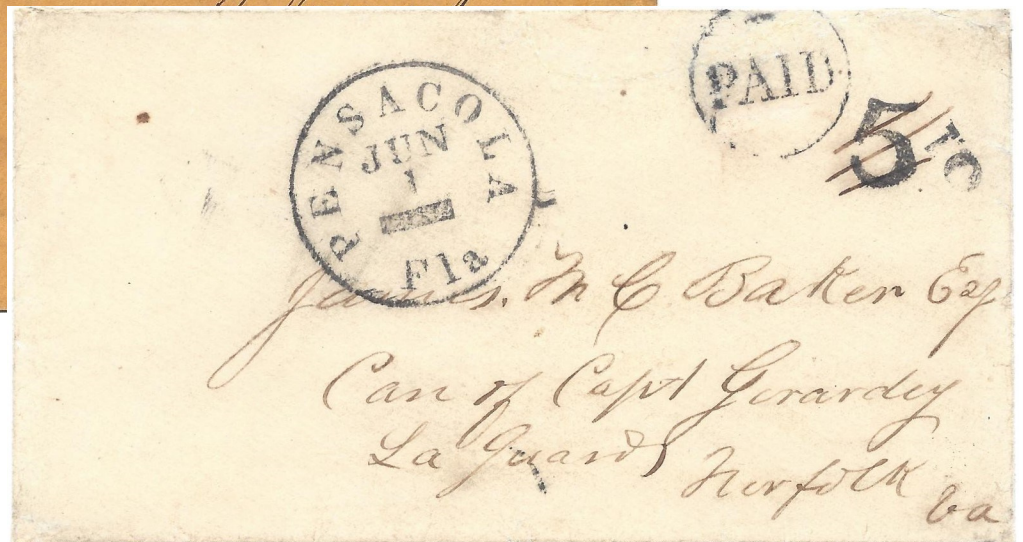 PAID
PENSACOLA
JUN
1
Fla
5 10
James. M C Baker Esq
Care of Capt Girardey
La Guards
Norfolk
Va